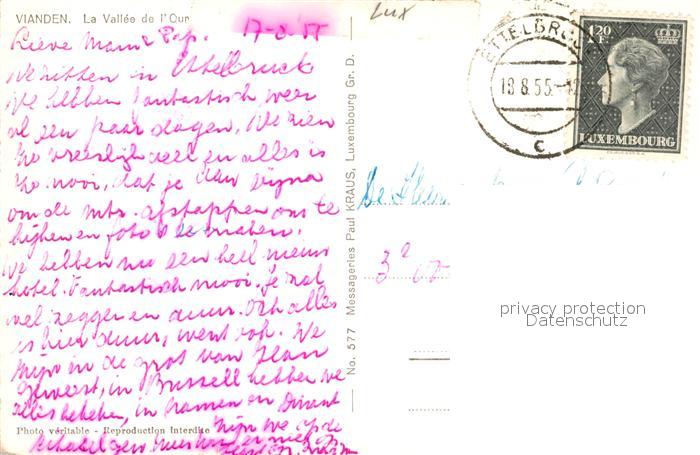 VIANDEN. La Vallée de l'Our
Lux
Lieve Mam & Pap. 17-8-55
We zitten in Ettelbruck
We hebben fantastisch weer
al een paar dagen. We zien
zo vreselijk veel en alles is
zo mooi, dat je bijna
om de mtr. afstappen om te
kijken en foto's te maken.
We hebben nu een heel nieuw
hotel. Fantastisch mooi. Je zal
wel zeggen en duur. Och alles
is hier duur, werd ook. We
zijn in de grot van Han
geweest, in Brussel hebben we
alles bekeken, in Namen en Dinant
zijn we op de
Photo véritable - Reproduction interdite
No. 577 Messageries Paul KRAUS, Luxembourg Gr. D.
ETTELBRUCK
18.8.55.-12
C
1,20
F.
LUXEMBOURG
De Heer
3
privacy protection
Datenschutz